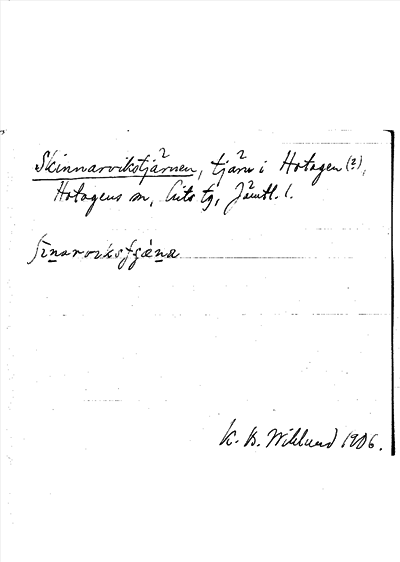 Skinnarvikstjärnen, tjärn i Hotagen (2),
Hotagens sn, Lits tg, Jämtl. l.
K. B. Wiklund 1906.